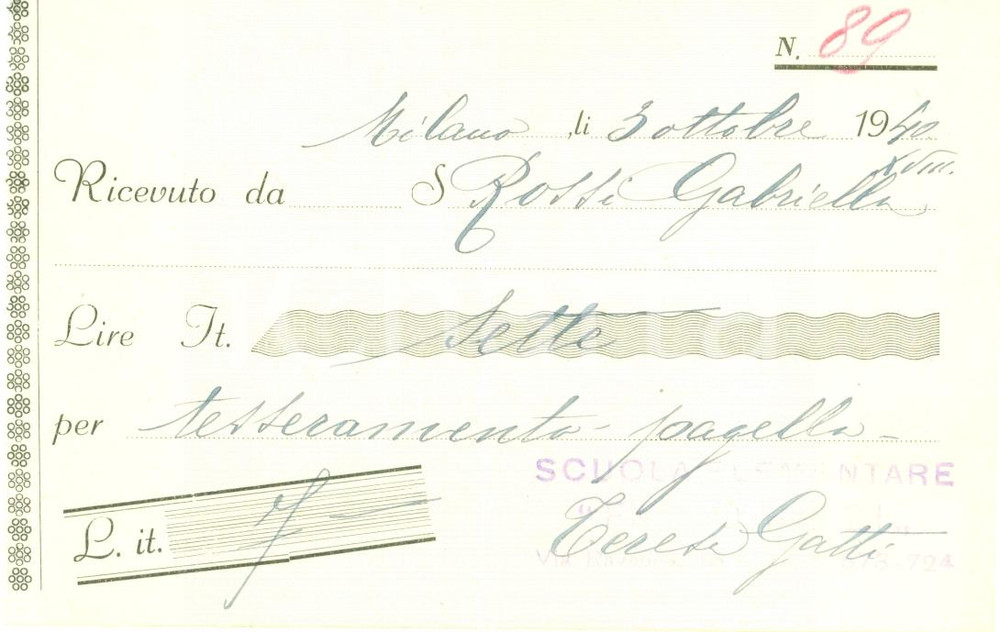 N. 89
Milano, li 3 ottobre 1940
XVIII.
Ricevuto da S Rossi Gabriella
Lire It. Sette
per tesseramento - pagella -
SCUOLA ELEMENTARE
L. it. 7 —
Teresa Gatti